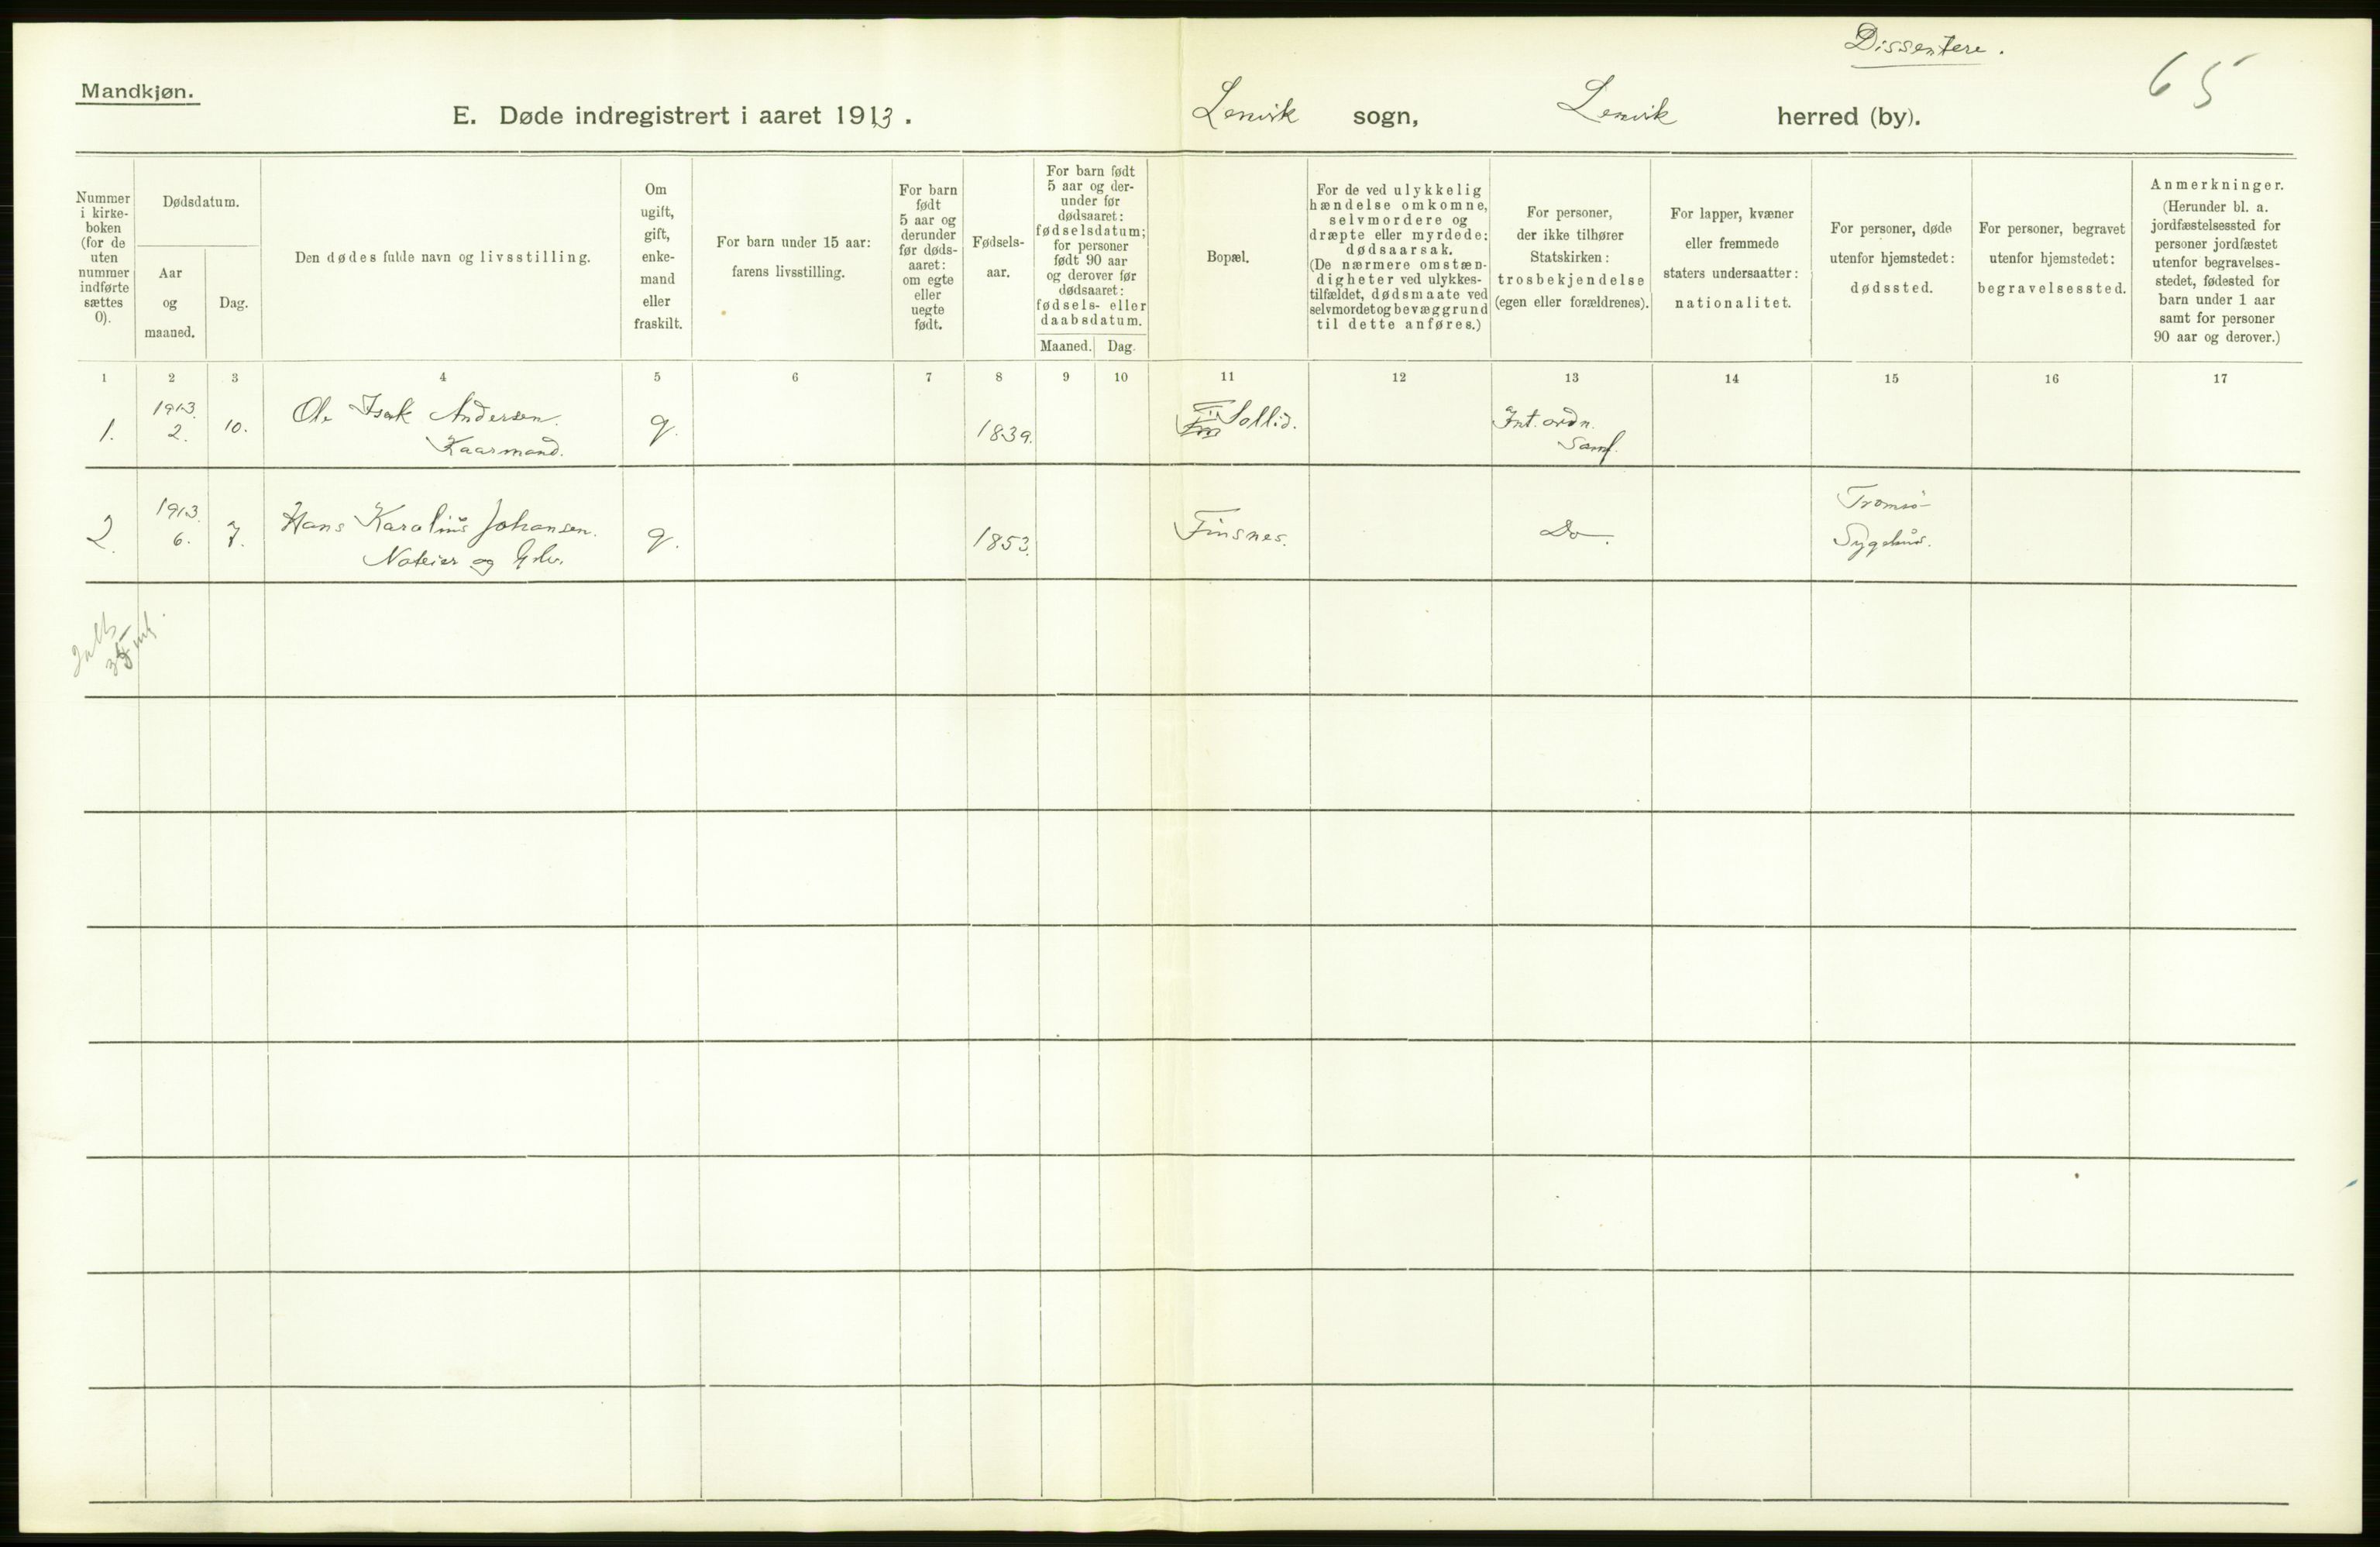 Dissentere.
65
Mandkjøn.
E. Døde indregistrert i aaret 1913. Lenvik sogn, Lenvik herred (by).
Nummer
i kirke-
boken
(for de
uten
nummer
indførte
sættes
0).
Dødsdatum.
Aar
og
maaned.
Dag.
Den dødes fulde navn og livsstilling.
Om
ugift,
gift,
enke-
mand
eller
fraskilt.
For barn under 15 aar:
farens livsstilling.
For barn
født
5 aar og
derunder
før døds-
aaret:
om egte
eller
uegte
født.
Fødsels-
aar.
For barn født
5 aar og der-
under før
dødsaaret:
fødselsdatum;
for personer
født 90 aar
og derover før
dødsaaret:
fødsels- eller
daabsdatum.
Maaned. Dag.
Bopæl.
For de ved ulykkelig
hændelse omkomne,
selvmordere og
dræpte eller myrdede:
dødsaarsak.
(De nærmere omstæn-
digheter ved ulykkes-
tilfældet, dødsmaate ved
selvmordet og bevæggrund
til dette anføres.)
For personer,
der ikke tilhører
Statskirken:
trosbekjendelse
(egen eller forældrenes).
For lapper, kvæner
eller fremmede
staters undersaatter:
nationalitet.
For personer, døde
utenfor hjemstedet:
dødssted.
For personer, begravet
utenfor hjemstedet:
begravelsessted.
Anmerkninger.
(Herunder bl. a.
jordfæstelsessted for
personer jordfæstet
utenfor begravelses-
stedet, fødested for
barn under 1 aar
samt for personer
90 aar og derover.)
1 2 3 4 5 6 7 8 9 10 11 12 13 14 15 16 17
1. 1913. 2. 10. Ole Isak Andersen.
Kaarmand.
g. 1839. Sollid. Int. ordn.
Samf.
2. 1913. 6. 7. Hans Karolius Johansen.
og
g. 1853. Finsnes. Do. Tromsø
Sygehus.